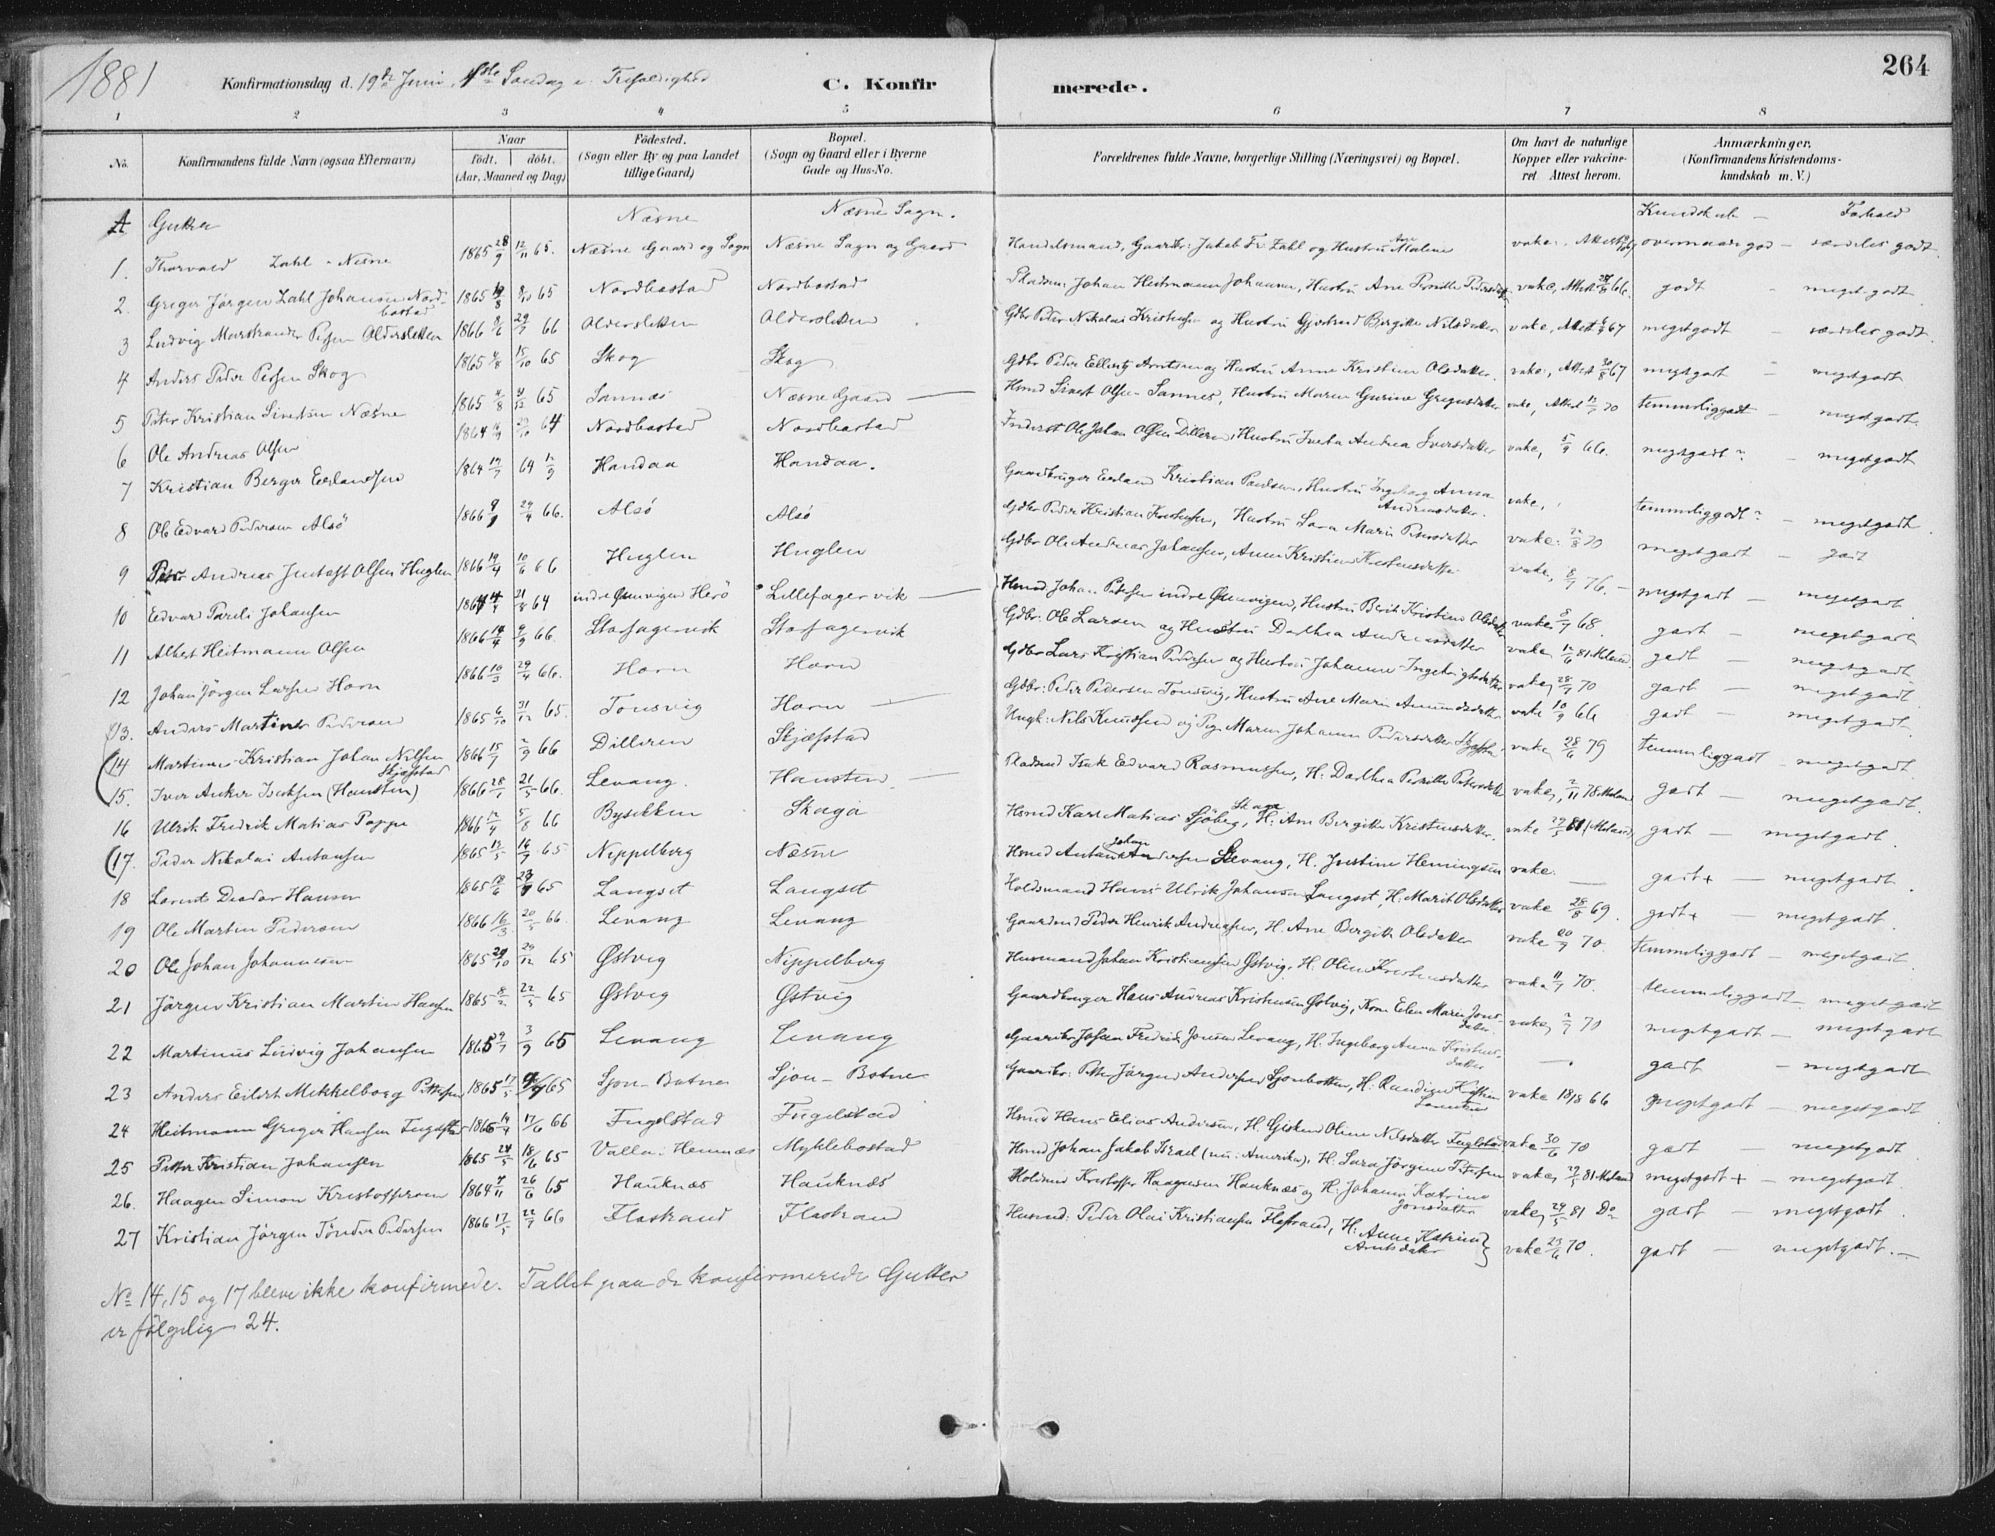 1881
Konfirmationsdag d. 19de Juni, 1ste Søndag e. Trefoldighed
C. Konfirmerede.
264
1 2 3 4 5 6 7 8
No.
Konfirmandens fulde Navn (ogsaa Efternavn)
Naar
födt. döbt.
(Aar, Maaned og Dag)
Födested.
(Sogn eller By og paa Landet
tillige Gaard)
Bopæl.
(Sogn og Gaard eller i Byerne
Gade og Hus-No.
Forældrenes fulde Navne, borgerlige Stilling (Næringsvei) og Bopæl.
Om havt de naturlige
Kopper eller vakcine-
ret. Attest herom.
Anmærkninger.
(Konfirmandens Kristendoms-
kundskab m. V.)
A Gutter Næsne Næsne Sogn. Kundskab – Forhold
1. Thorvald Zahl - Næsne 1865 28/9 12/11 65. Næsne Gaard og Sogn Næsne Sogn og Gaard Handelsmand, Gaardbr: Jakob Fr. Zahl og Hustru Ane Malene vakc. Attest overmaade god – særdeles godt.
2. Greger Jørgen Zahl Johansen Nordbostad 1865 19/8 8/10 65 Nordbostad Nordbostad Pladsm: Johan Heitmann Johansen, Hustru Ane Pernille Pedersdatter vakc, Attest 66. godt – meget godt.
3 Ludvig Marstrander Oldersletten 1866 8/6 29/7 66 Oldersletten Oldersletten Gdbr Peder Nikolai Kristensen og Hustru Gjertrud Birgitte Nilsdatter vakc, Attest 67 megetgodt – særdeles godt.
4 Anders Peder Skog 1865 15/10 65 Skog Skog Gdbr Peder Ellertz Arntsen og Hustru Anne Kristine Olsdatter. vakc, Attest 30/8 67 megetgodt – megetgodt
5 Peter Kristian Sivertsen Næsne 1865 4/8 65 Sannes Næsne Gaard – Hsmd Sivert Olsen Sannes, Hustru Maren Gurine Gregusdatter vakc, Attest 70 temmeliggodt – megetgodt.
6 Ole Andreas Olsen 1864 64 Nordbostad Nordbostad Inderst Ole Johan Olsen Dilleren, Hustru Andrea Iversdatter vakc, 5/9 66. megetgodt? – megetgodt
7 Kristian Berger Erlandsen 1864 64 Handaa Handaa. Gaardbruger Erland Kristian Paulsen, Hustru Ingeborg Anna Andreasdatter. vakc, temmeliggodt? – megetgodt.
8 Ole Edvard Pedersen Alsö 1866 29/4 66. Alsö Alsö Gdbr Peder Kristian Hustru Sara Marie Petersdatter vakc: 70 megetgodt – godt
9 Peter Andreas Justoft Olsen Huglen 1866 19/4 10/6 66 Huglen Huglen Gdbr Ole Andreas Johansen, Anne Kristine vakc, 8/7 76. – megetgodt – megetgodt
10 Edvard Pareli Johansen 1864 21/8 64 indre Herö Lillefagervik – Hsmd Johan Petersen indre Hustru Berit Kristine Olsdatter vakc 8/7 68. godt – megetgodt
11 Albert Heitmann Olsen 1866 9/9 66. Storfagervik Storfagervik Gdbr: Ole Larsen og Hustru Dorthea Andreasdatter vakc 12/6 81 Meland godt – megetgodt
12 Johan Jörgen Larsen Horn 1866 10/3 29/4 66. Horn Horn Gdbr Lars Kristian Pedersen og Hustru Johanne Ingebrigtsdatter vakc, 28/7 70 godt – megetgodt.
13. Anders Martinus Pedersen 1865 6/10 31/12 65. Tonsvig Horn – Gdbr: Peder Pedersen Tonsvig, Hustru Ane Marie Amundsdatter vakc 10/9 66 godt – megetgodt.
14 Martinus Kristian Johan Nilsen Skjæfstad 1866 15/7 2/9 66 Dilleren Skjæfstad Ungk: Nils Knudsen og Pige Maren Johanna Pedersdatter vakc, 28/6 79 temmeliggodt – megetgodt
15. Iver Anker Isaksen (Hansten) 1866 21/5 66. Levang. Hansten – Pladsmd Isak Edvard Rasmussen, H: Dorthea Pernille Petersdatter vakc, 2/11 78 Meland godt – megetgodt
16 Ulrik Fredrik Matias Poppe 1866 12/4 5/8 66 Bysekken Skaga Hsmd Karl Matias Sjöberg, Skaga H: Ane Bergitte Kristensdatter. vakc 29/5 81 (Meland) godt – megetgodt.
17. Peder Nikolai Antonsen 1865 13/5 16/7 65 Nippelberg Næsne Hsmd Anton Johan Andersen Levang, H. Justine Hemingsen vakc. – godt + – megetgodt.
18 Lorents Deodor Hansen 1865 18/6 65 Langset Langset Holdsmand Hans Ulrik Johansen Langset, H: Marit Olsdatter vakc 28/8 69. godt + – megetgodt
19 Ole Martin Pedersen 1866 16/3 20/5 66. Levang Levang Gaardmd Peder Henrik Andreassen, H. Ane Bergitte Olsdatter vakc 70. temmeliggodt – megetgodt.
20 Ole Johan Johannesen 1865 29/10 29/12 65 Østvig Nippelberg Husmand Johan Kristiansen Østvig, H. Oline vakc 11/7 70. temmeliggodt – megetgodt
21 Jörgen Kristian Martin Hansen 1865 8/2 22/5 65 Østvig Østvig Gaardbruger Hans Andreas Kristensen Østvig, Kone Elen Maria Jonsdatter vakc, 2/7 70 megetgodt – megetgodt
22 Martinus Ludvig Johansen 1865 29/7 3/9 65 Levang Levang Gaardbr Johan Fredrik Jonsen Levang, H. Ingeborg Anna Kristensdatter – godt – megetgodt
23 Anders Eilert Mikkelborg Pettersen 1865 17/5 65 Sjon-Botnen Sjon-Botnen Gaardbr: Petter Jörgen Andersen Sjonbotten, H: Randine vakc 18/8 66 megetgodt – megetgodt
24 Heitmann Greger Hansen Fuglstad 1866 17/6 66 Fuglstad Fuglstad Hsmd Hans Elias Andersen, H. Gidsken Oline Nilsdatter Fuglstad vakc 30/6 70 godt – megetgodt
25 Petter Kristian Johansen 1865 24/5 18/6 65 Valla: Hemnæs Myklebostad Hsmd Johan Jakob Israel (nu: Amerika), H: Sara Jörgine Petersen vakc, 29/5 81 Meland megetgodt + – megetgodt
26. Haagen Simon Kristoffersen 1864 9/11 26/6 65 Hauknæs Hauknæs Holdsmd Kristoffer Haagensen Hauknæs og H: Johanna Katrine Jonsdatter vakc, 29/5 81 Do godt – megetgodt.
27 Kristian Jörgen Tönder Pedersen 1866 17/5 22/7 66 Flostrand Flostrand Husmd: Peder Olai Kristiansen Flostrand, H: Anne Katrine Arntsdatter vakc 23/6 70. godt – megetgodt. –
No 14, 15 og 17 bleve ikke konfirmede. Tallet paa de konfirmerede Gutter
er fölgelig 24.